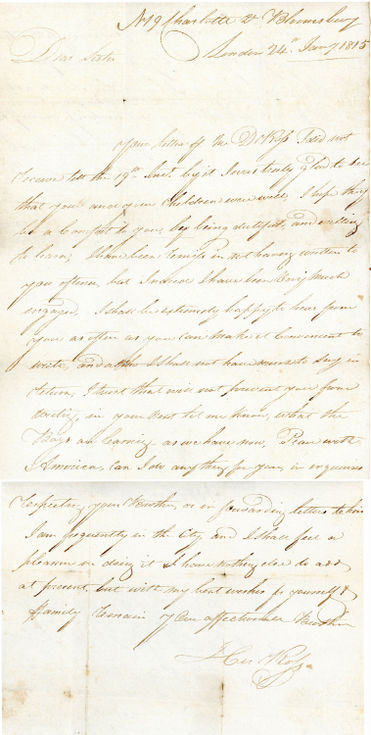 No 19 Charlotte St Bloomsbury
London 24th Jany 1815
Dear Sister
your letter of the I did not
receive till the 19th Inst. by it I was truly glad to see
that you and your Children were well, I hope they
be a Comfort to you, by being dutiful, and willing
to learn, I have been remiss in not having written to
you oftener, but Indeed I have been very much
engaged. I shall be extremely happy to hear from
you as often as you can make it Convenient to
write, and altho I shall not have much to say in
return, I trust that will not prevent you from
writing, in your next let me know, what the
Boys are learning, as we have now Peace with
America, Can I do any thing for you, in enquiries
respecting your Brother, or in forwarding letters to him
I am frequently in the City, and I shall feel a
pleasure in doing it I have nothing else to add
at present but with my best wishes for yourself &
family remain your affectionate Brother
Ross